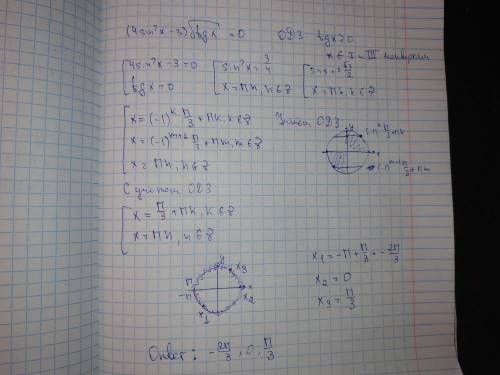 (4sin²x-3)√tgx = 0 ОДЗ tgx ≥ 0
x ∈ I и III четверти
[4sin²x-3=0 [sin²x = 3/4 [sinx = ±√3/2
tgx=0 x=πn, n∈z x=πn, n∈z
[x=(-1)^k π/3 + πk, k∈z
x=(-1)^(m+1) π/3 + πm, m∈z
x=πn, n∈z
ОДЗ
(-1)^k π/3 + πk
(-1)^(m+1) π/3 + πm
С учётом ОДЗ
[x = π/3 + πk, k∈z
x=πn, n∈z
y
x
π
-π
x₃
x₂
x₁
x₁ = -π + π/3 = -2π/3
x₂ = 0
x₃ = π/3
Ответ: -2π/3, 0, π/3